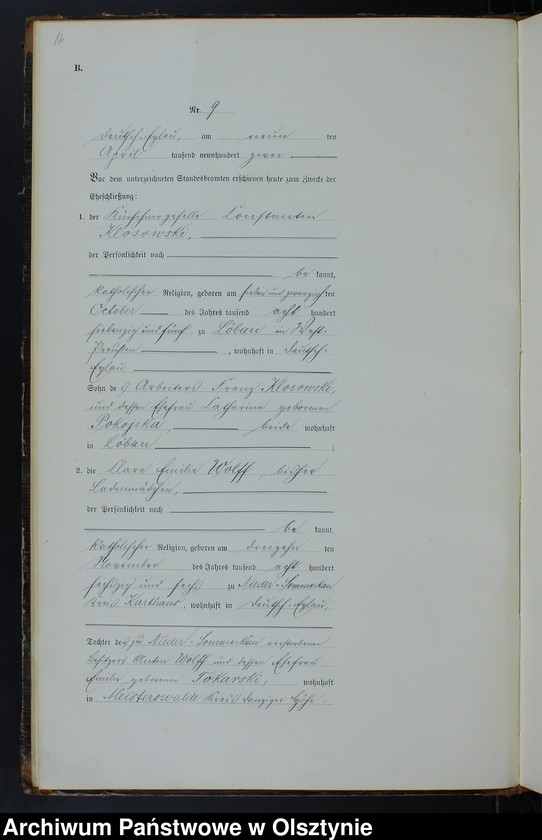 16
B.
Nr. 9
Deutsch-Eylau, am neun ten
April tausend neunhundert zwei
Vor dem unterzeichneten Standesbeamten erschienen heute zum Zwecke der
Eheschließung:
1. der Kürschnergeselle Constantin
Klosowski,
der Persönlichkeit nach
be kannt,
katholischer Religion, geboren am sieben und zwanzigsten
October des Jahres tausend acht hundert
siebenzig und fünf zu Löbau in West-
Preußen, wohnhaft in Deutsch-
Eylau,
Sohn des Arbeiters Franz Klosowski,
und dessen Ehefrau Catharina geborenen
Pokojska, beide wohnhaft
in Löbau ;
2. die Clara Emilie Wolff, bisher
Ladenmädchen,
der Persönlichkeit nach
be kannt,
katholischer Religion, geboren am dreizehn ten
November des Jahres tausend acht hundert
sechszig und sechs zu Nieder-Sommerkau
Kreis Karthaus, wohnhaft in Deutsch-Eylau,
Tochter des zu Nieder-Sommerkau verstorbenen
Besitzers Anton Wolff und dessen Ehefrau
Emilie geborenen Tokarski, wohnhaft
in Meisterswalde Kreis Danziger Höhe.
Archiwum Państwowe w Olsztynie